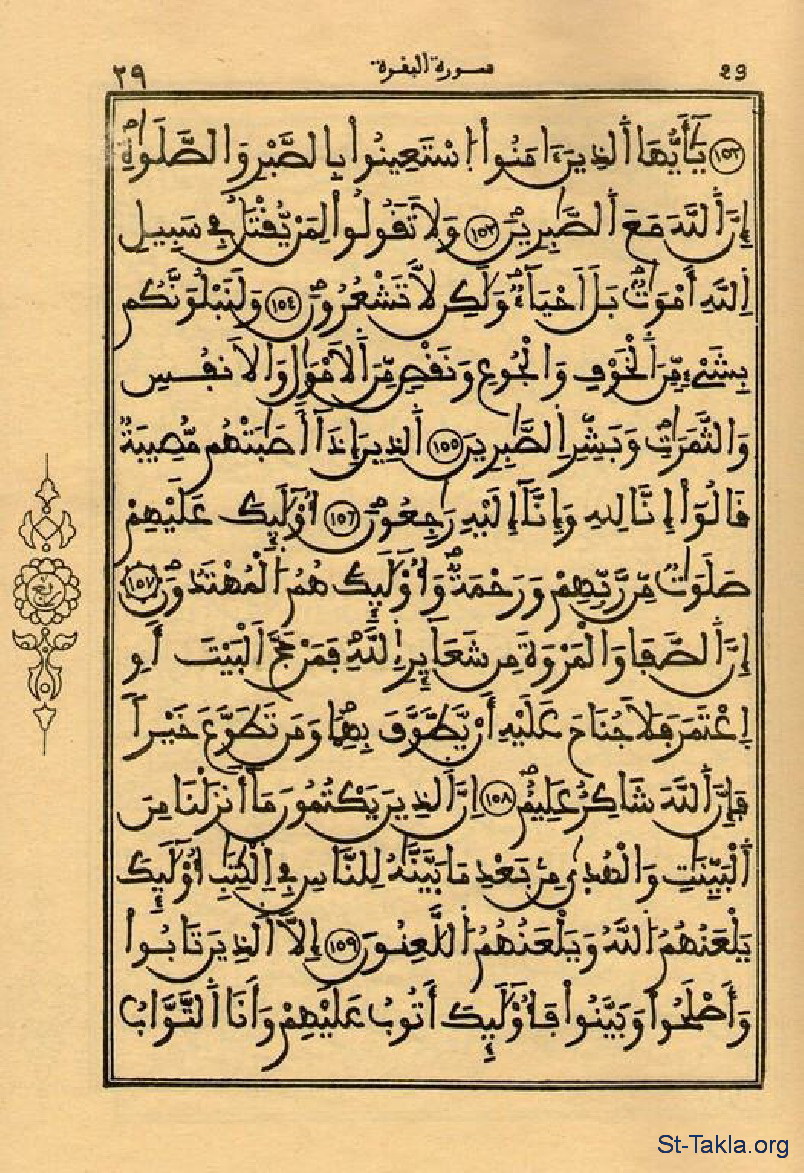 29 سورة البقرة ٢٩
١٥٢ يَٰٓأَيُّهَا اَ۬لذِينَ ءَامَنُواْ اُ۪سْتَعِينُواْ بِالصَّبْرِ وَالصَّلَوٰةِ
إِنَّ اَ۬للَّهَ مَعَ اَ۬لصَّٰبِرِينَ ١٥٣ وَلَا تَقُولُواْ لِمَنْ يُّقْتَلُ فِے سَبِيلِ
اِ۬للَّهِ أَمْوَٰتٌ بَلَ اَحْيَآءٌ وَلَٰكِن لَّا تَشْعُرُونَ ١٥٤ وَلَنَبْلُوَنَّكُم
بِشَےْءٍ مِّنَ اَ۬لْخَوْفِ وَالْجُوعِ وَنَقْصٍ مِّنَ اَ۬لَامْوَٰلِ وَالَانفُسِ
وَالثَّمَرَٰتِ وَبَشِّرِ اِ۬لصَّٰبِرِينَ ١٥٥ اَ۬لذِينَ إِذَآ أَصَٰبَتْهُم مُّصِيبَةٌ
قَالُوٓاْ إِنَّا لِلهِ وَإِنَّآ إِلَيْهِ رَٰجِعُونَ ١٥٦ أُوْلَٰٓئِكَ عَلَيْهِمْ
صَلَوَٰتٌ مِّن رَّبِّهِمْ وَرَحْمَةٌ وَأُوْلَٰٓئِكَ هُمُ اُ۬لْمُهْتَدُونَ ١٥٧
إِنَّ اَ۬لصَّفَا وَالْمَرْوَةَ مِن شَعَآئِرِ اِ۬للَّهِ فَمَنْ حَجَّ اَ۬لْبَيْتَ أَوِ
اِ۪عْتَمَرَ فَلَا جُنَاحَ عَلَيْهِ أَنْ يَّطَّوَّفَ بِهِمَا وَمَن تَطَوَّعَ خَيْراً
فَإِنَّ اَ۬للَّهَ شَاكِرٌ عَلِيمٌ ١٥٨ اِنَّ اَ۬لذِينَ يَكْتُمُونَ مَآ أَنزَلْنَا مِنَ
اَ۬لْبَيِّنَٰتِ وَالْهُدٜىٰ مِنۢ بَعْدِ مَا بَيَّنَّٰهُ لِلنَّاسِ فِے اِ۬لْكِتَٰبِ أُوْلَٰٓئِكَ
يَلْعَنُهُمُ اُ۬للَّهُ وَيَلْعَنُهُمُ اُ۬للَّٰعِنُونَ ١٥٩ إِلَّا اَ۬لذِينَ تَابُواْ
وَأَصْلَحُواْ وَبَيَّنُواْ فَأُوْلَٰٓئِكَ أَتُوبُ عَلَيْهِمْ وَأَنَا اَ۬لتَّوَّابُ
St-Takla.org